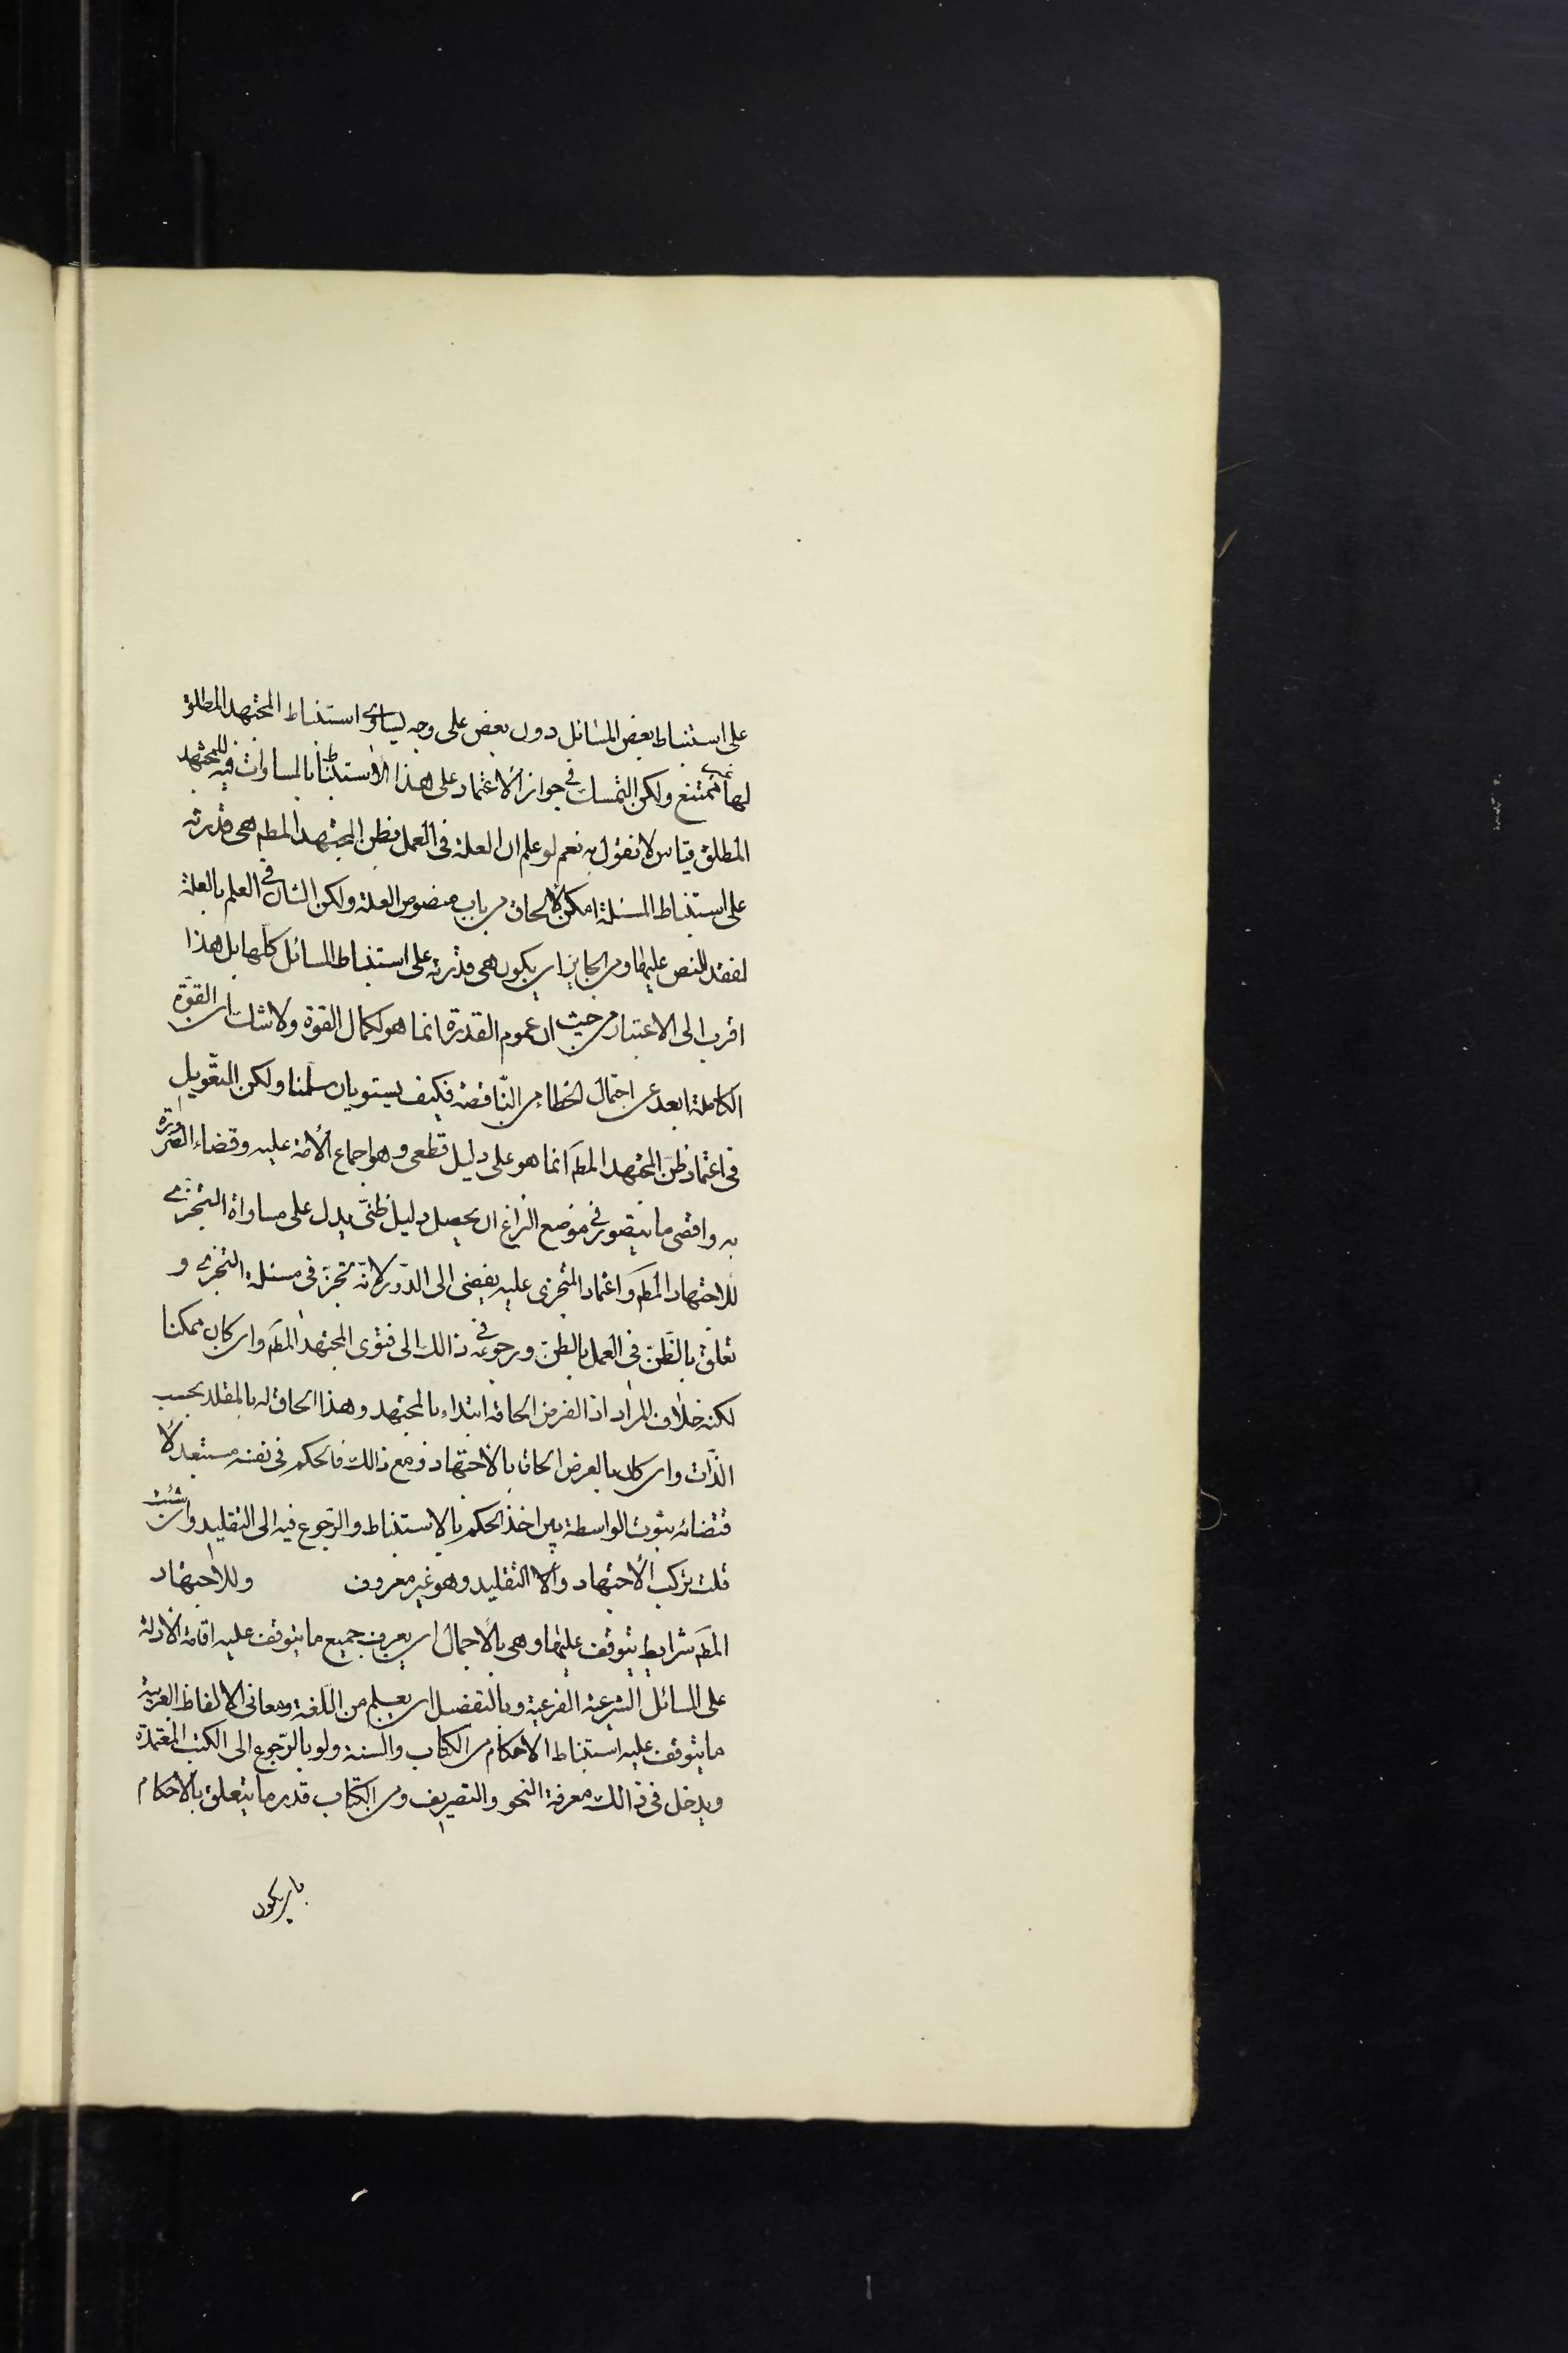 على استنباط بعض المسائل دون بعض على وجه يساوى استنباط المجتهد المطلق
لها غير ممتنع ولكن التمسك فى جواز الاعتماد على هذا الاستنباط بالمساوات فيه للمجتهد
المطلق قياس لا نقول به نعم لو علم ان العلة فى العمل بظن المجتهد المطم هى قدرته
على استنباط المسئلة امكن الالحاق من باب منصوص العلة ولكن الشان فى العلم بالعلة
لفقد النص عليها ومن الجايز ان يكون هى قدرته على استنباط المسائل كلها بل هذا
اقرب الى الاعتبار من حيث ان عموم القدرة انما هو لكمال القوة ولا شك ان القوّة
الكاملة ابعد عن احتمال الخطاء من النّاقصة فكيف يستويان سلمنا ولكن التعّويل
فى اعتماد ظنّ المجتهد المطم انما هو على دليل قطعى وهو اجماع الأمة عليه وقضاء الضرورة
به واقصى ما يتصور فى موضع النزاع ان يحصل دليل ظنّى يدل على مساواة التجزى
للاجتهاد المطم واعتماد المتجزى عليه يفضى الى الدّور لانّه تجزّ فى مسئلة التجزى و
تعلّق بالظّنّ فى العمل بالظنّ ورجوعه فى ذالك الى فتوى المجتهد المطم وان كان ممكنا
لكنه خلاف المراد اذ الفرض الحاقه ابتداء بالمجتهد وهذا الحاق له بالمقلد بحسب
الذّات وان كان بالعرض الحاق بالاجتهاد ومع ذالك فالحكم فى نفسه مستبعد لا
قتضائه ثبوت الواسطة بين اخذ الحكم بالاستنباط والرّجوع فيه الى التقليد وان شئت
قلت تركب الاجتهاد والا التقليد وهو غير معروف وللاجتهاد
المطم شرايط يتوقف عليها وهى بالاجمال ان يعرف جميع ما يتوقف عليه اقامة الادلة
على المسائل الشرعية الفرعية وبالتفضيل ان يعلم من اللّغة ومعانى الالفاظ العربية
ما يتوقف عليه استنباط الاحكام من الكتاب والسنة ولو بالرّجوع الى الكتب المعتمدة
ويدخل فى ذالك معرفة النحو والتصريف ومن الكتاب قدر ما يتعلق بالاحكام
بان يكون